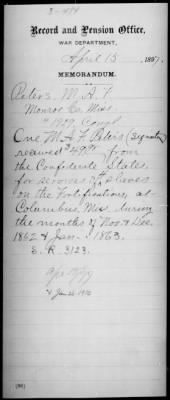 3-494
Record and Pension Office,
WAR DEPARTMENT,
April 15, 1897.
MEMORANDUM.
Peters, M. A. F.
Monroe Co. Miss.
One M. A. F. Peters (Signature)
received $ from
the Confederate States,
for services of slaves
on the Fortifications, at
Columbus, Miss. during
the months of Nov. & Dec.
1862 & Jan. 1863.
S. R. 3123.